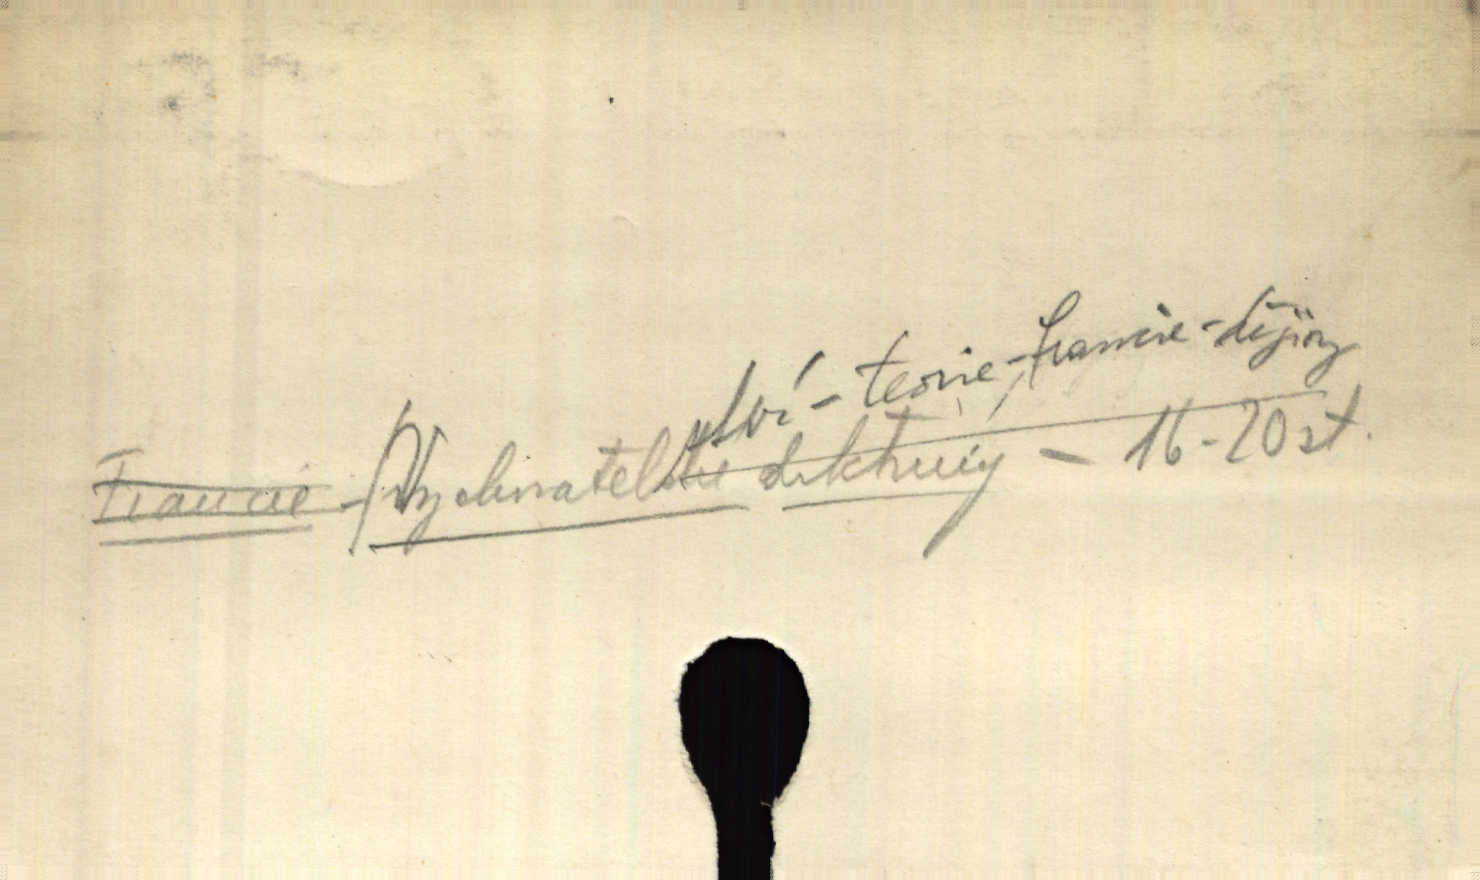 ství - teorie - Francie - dějiny
Francie - Vychovatelské doktriny - 16-20 st.